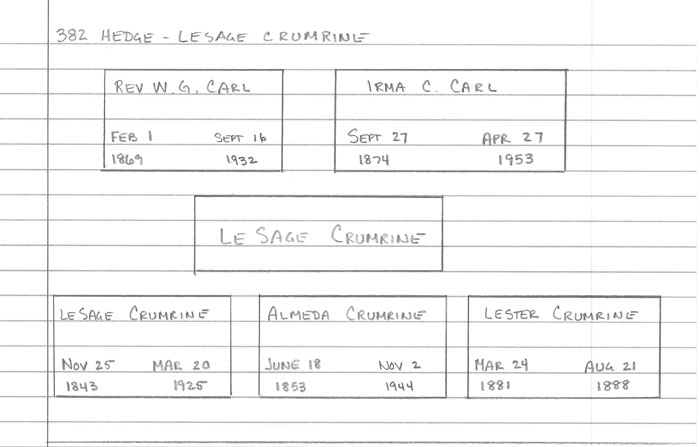 382 HEDGE - LESAGE CRUMRINE
REV W.G. CARL
FEB 1 SEPT 16
1869 1932
IRMA C. CARL
SEPT 27 APR 27
1874 1953
LE SAGE CRUMRINE
LESAGE CRUMRINE
NOV 25 MAR 20
1843 1925
ALMEDA CRUMRINE
JUNE 18 NOV 2
1853 1944
LESTER CRUMRINE
MAR 24 AUG 21
1881 1888